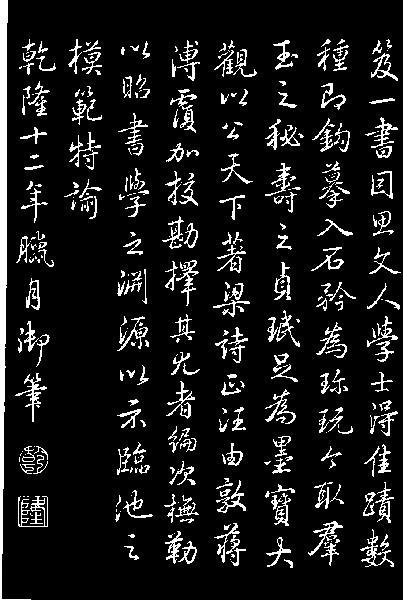 笈一書因思文人學士得佳蹟數
種即鈎摹入石矜為珍玩今取羣
玉之秘壽之貞珉足為墨寶大
觀以公天下著梁詩正汪由敦蔣
溥覆加校勘擇其尤者編次橅勒
以昭書學之淵源以示臨池之
模範特諭
乾隆十二年臘月御筆
乾
隆